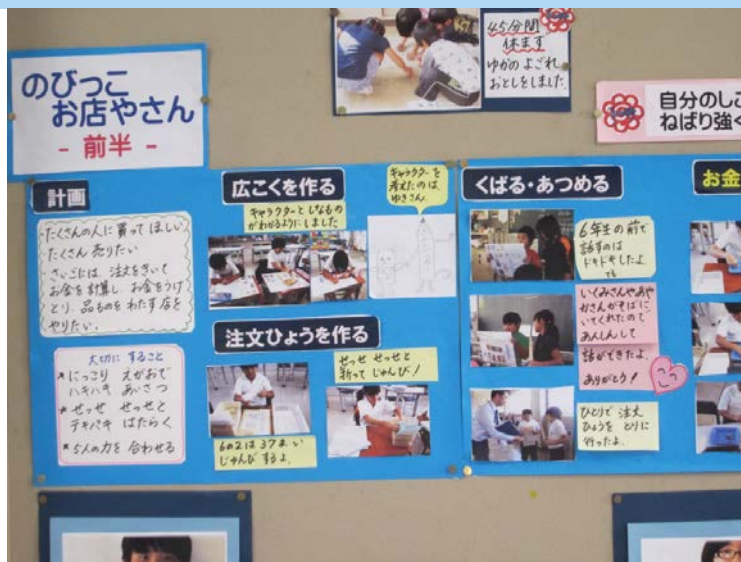 45分間
休まず
ゆかの よごれ
おとしをしました
のびっこ
お店やさん
- 前半 -
自分のしご
ねばり強く
計画
たくさんの人に買って ほしい
たくさん 売りたい
さいごには、注文をきいて
お金を計算し、お金をうけ
とり、品ものを わたす店を
やりたい。
大切に すること
にっこり えがおで
ハキハキ あいさつ
せっせ せっせと
テキパキ はたらく
5人の力を 合わせる
広こくを作る
キャラクターと しなもの
がわかるように しました
キャラクターを
考えたのは
ゆきさん。
注文ひょうを作る
せっせ せっせと
折って じゅんび!
6の2は37まい
じゅんび するよ。
くばる・あつめる
6年生の前で
話すのは
ドキドキしたよ
でも
いくみさんやあや
かさんがそばに
いてくれたので
あんしんして
話ができたよ。
ありがとう!
ひとりで 注文
ひょうを とりに
行ったよ。
お金